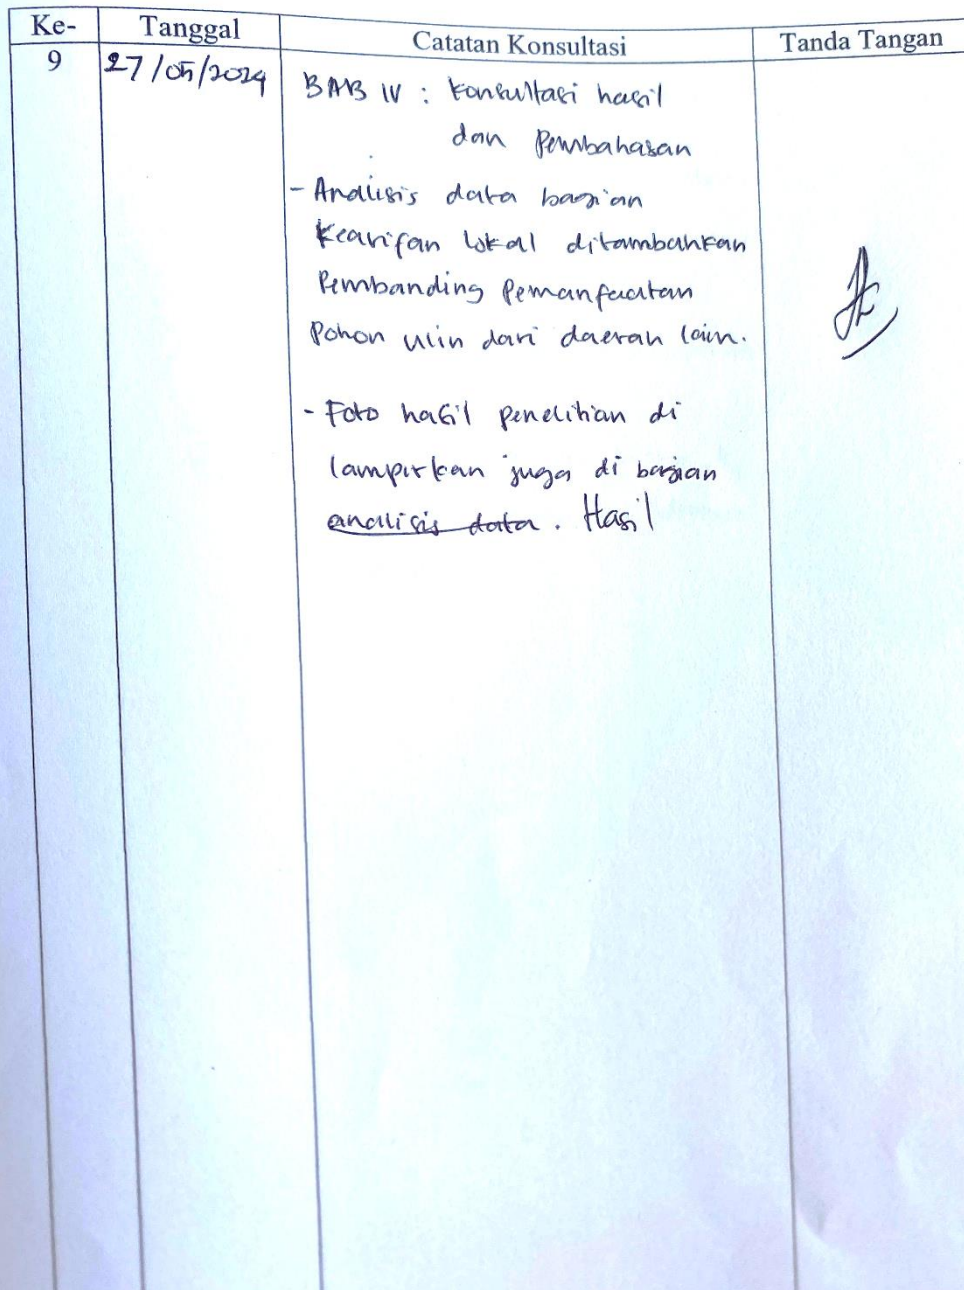 Ke- Tanggal Catatan Konsultasi Tanda Tangan
9 27/05/2024 BAB IV : Konsultasi hasil
dan Pembahasan
- Analisis data bagian
Kearifan lokal ditambahkan
Pembanding Pemanfaatan
Pohon Ulin dari daerah lain.
- Foto hasil penelitian di
lampirkan juga di bagian
analisis data. Hasil